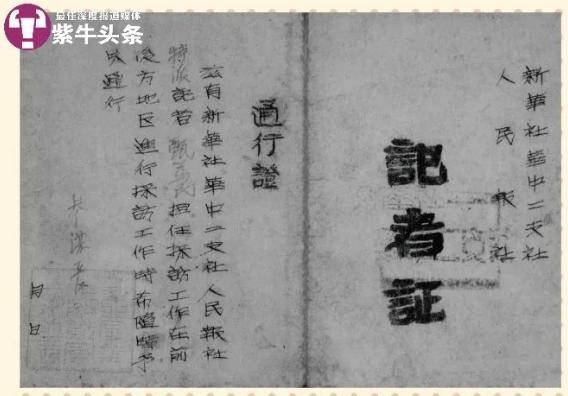 最佳深度报道媒体
紫牛头条
新華社華中二支社
人民報社
記者証
通行證
茲有新華社華中二支社人民報社
特派記者 担任採訪工作在前
後方地区進行採訪工作時希隨時予
以通行
月 日